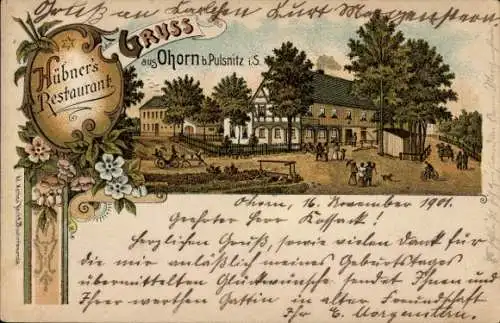 Gruß an Lorchen Kurt Morgenstern
GRUSS
aus Ohorn b. Pulsnitz i.S.
Hübner's
Restaurant.
Ohorn, 16. November 1901.
Geehrter Herr Kossack!
Herzlichen Gruß, sowie vielen Dank für
die mir anläßlich meines Geburtstages
übermittelten Glückwünsche sendet Ihnen und
Ihrer werthen Gattin in alter Freundschaft
Ihr E. Morgenstern.